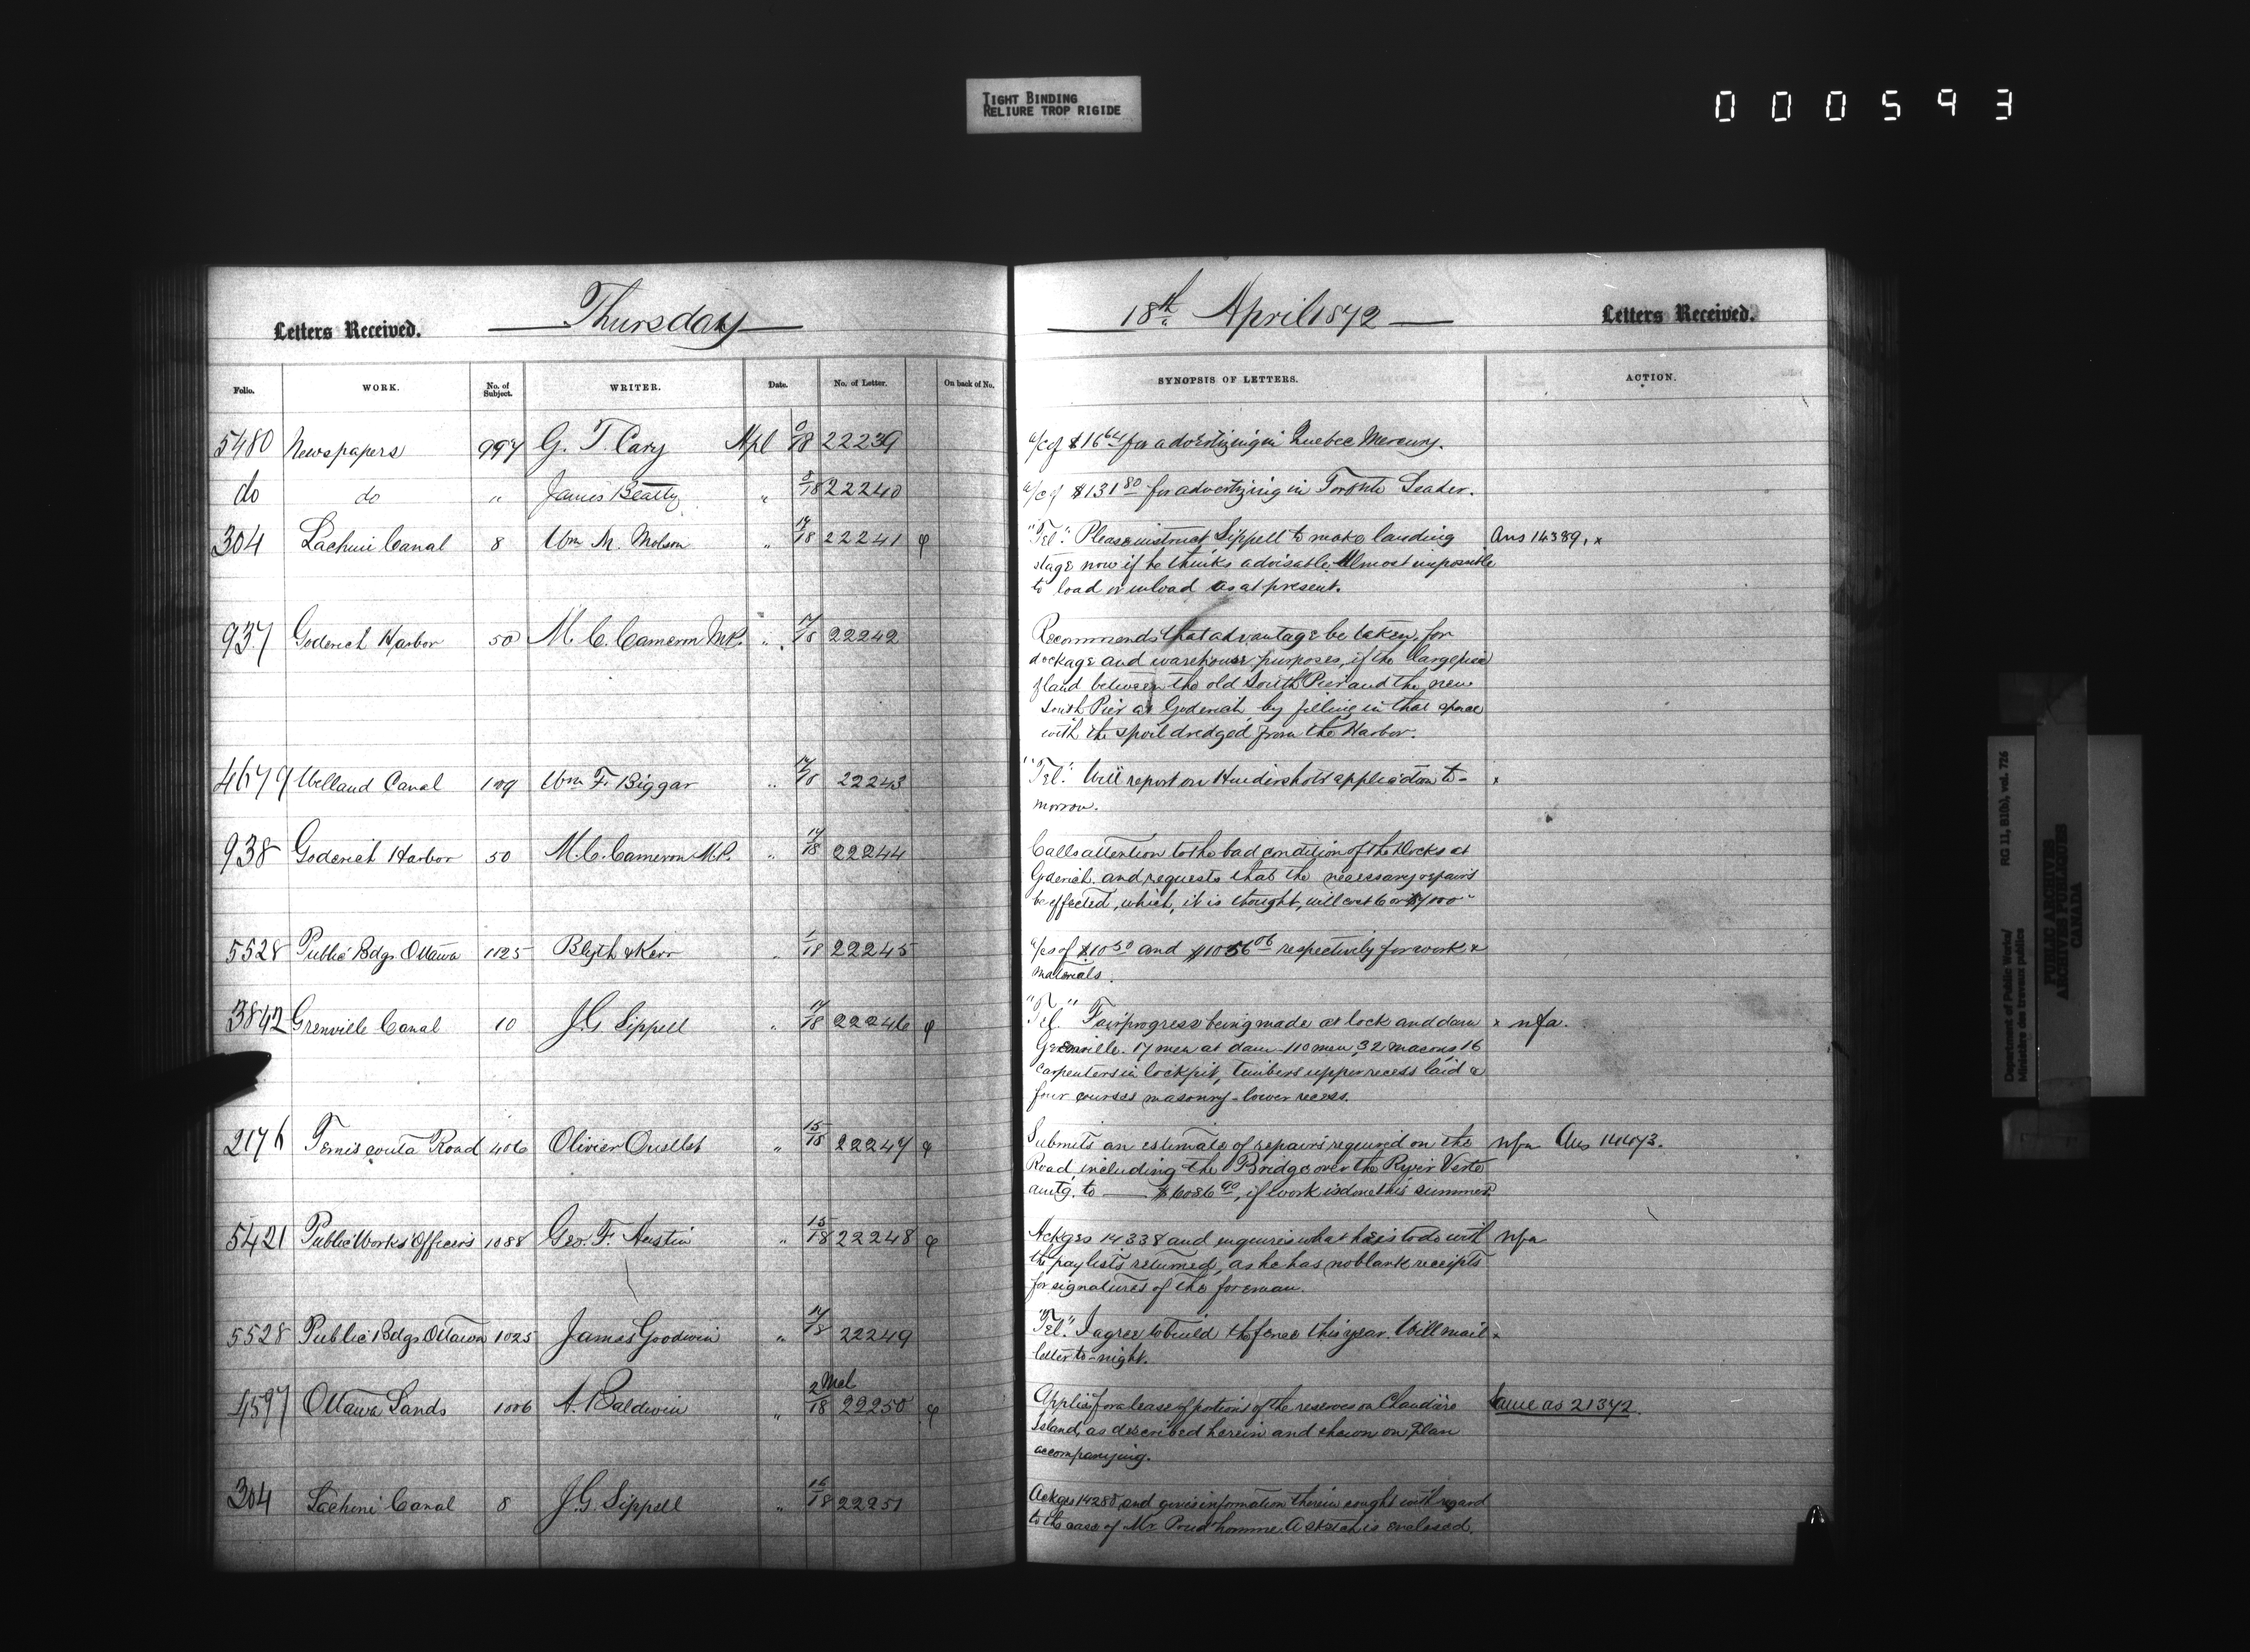 TIGHT BINDING
RELIURE TROP RIGIDE
000593
Letters Received. Thursday
Folio. WORK. No. of Subject. WRITER. Date. No. of Letter. On back of No.
5480 Newspapers 997 G. T. Cary Apl 0/18 22239
do do " James Beatty " 5/18 22240
304 Lachine Canal 8 Wm M. Molson " 17/18 22241 φ
937 Goderich Harbor 50 M. C. Cameron MP. " 17/18 22242
4679 Welland Canal 109 Wm F. Biggar " 17/18 22243
938 Goderich Harbor 50 M. C. Cameron M.P. " 17/18 22244
5528 Public Bdgs Ottawa 1125 Blyth & Kerr " 1/18 22245
3842 Grenville Canal 10 J. G. Sippell " 17/18 22246 φ
2176 Temiscouta Road 406 Olivier Ouellet " 15/18 22247 φ
5421 Public Works Officers 1088 Geo. F. Austin " 15/18 22248 φ
5528 Public Bdgs Ottawa 1025 James Goodwin " 17/18 22249
4597 Ottawa Lands 1006 A. Baldwin " 2 Mch/18 22250 φ
304 Lachine Canal 8 J. G. Sippell " 16/18 22251
18th April 1872 Letters Received.
SYNOPSIS OF LETTERS. ACTION.
a/c of $16 64 for advertizing in Quebec Mercury.
a/c of $131 80 for advertizing in Toronto Leader.
"Tel." Please instruct Sippell to make landing Ans 14389, x
stage now if he thinks advisable. Almost impossible
to load or unload as at present.
Recommends that advantage be taken, for
dockage and warehouse purposes, if the large piece
of land between the old South Pier and the new
South Pier at Goderich, by filling in that space
with the spoil dredged from the Harbor.
"Tel." Will report on Hendershots application to- x
morrow.
Calls attention to the bad condition of the Docks at
Goderich. and requests that the necessary repairs
be effected, which, it is thought, will cost 6 or $7000
a/cs of $10 50 and $1056 06 respectively for work &
materials.
"Tel." Fair progress being made at lock and dam x nfa.
Grenville. 17 men at dam - 110 men, 32 macons, 16
carpenters in lock pit, timbers upper recess laid &
four courses masonry - lower recess.
Submits an estimate of repairs required on the nfa Ans 14473.
Road, including the Bridge over the River Verte
amtg. to —— $6086 90, if work is done this summer.
Ackges 14338 and enquires what he is to do with nfa
the paylists returned, as he has no blank receipts
for signatures of the foreman.
"Tel." I agree to build the fence this year. Will mail x
letter to-night.
Applies for a lease of potions of the reserves on Chaudière Same as 21372.
Island, as described herein and shewn on Plan
accompanying.
Ackges 14280, and gives information therein sought with regard
to the case of Mr. Prud'homme. A sketch is enclosed.
Department of Public Works/ RG 11, B1(b), vol. 726
Ministère des travaux publics
PUBLIC ARCHIVES
ARCHIVES PUBLIQUES
CANADA